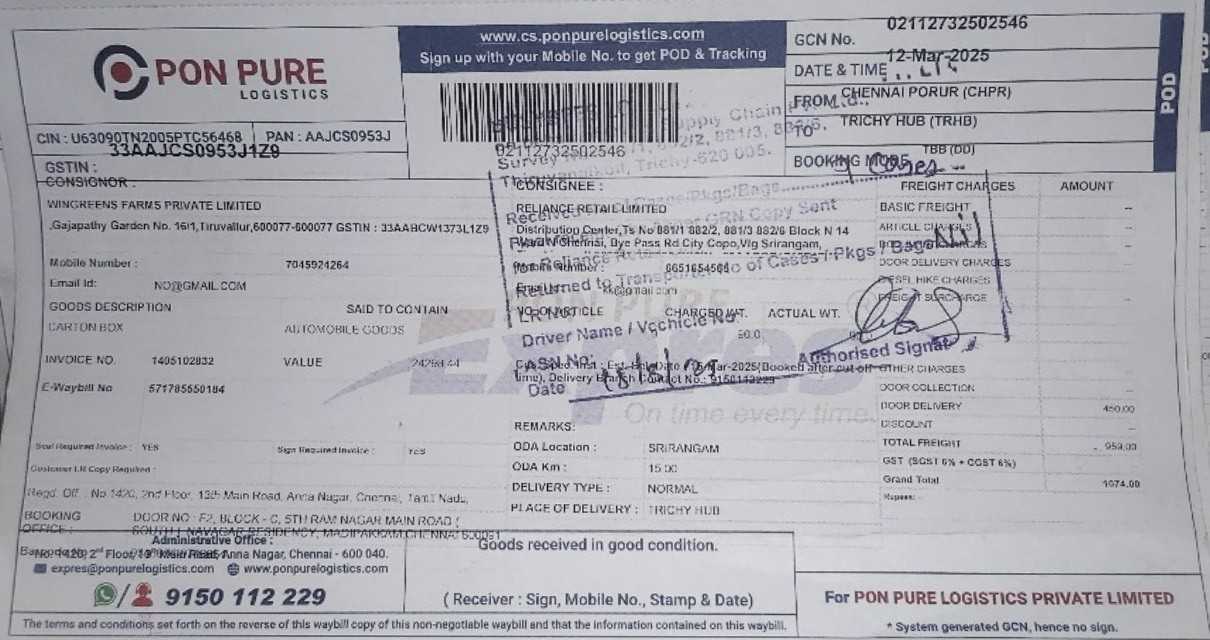 PON PURE
LOGISTICS
www.cs.ponpurelogistics.com
Sign up with your Mobile No. to get POD & Tracking
GCN No. 02112732502546
DATE & TIME 12-Mar-2025
FROM CHENNAI PORUR (CHPR)
TO TRICHY HUB (TRHB)
TBB (DD)
BOOKING
POD
CIN : U63090TN2005PTC56468 PAN : AAJCS0953J
33AAJCS0953J1Z9
GSTIN :
02112732502546
Supply Chain
Survey 882/2, 881/3, 882/6,
Trichy-620 005.
Cases
CONSIGNOR :
WINGREENS FARMS PRIVATE LIMITED
,Gajapathy Garden No. 16/1,Tiruvallur,600077-600077 GSTIN : 33AABCW1373L1Z9
Mobile Number : 7045924264
Email Id: NO@GMAIL.COM
GOODS DESCRIPTION SAID TO CONTAIN
CARTON BOX AUTOMOBILE GOODS
INVOICE NO. 1405102832 VALUE
E-Waybill No 571785650184
Invoice : YES Sign Required Invoice : YES
Customer LR Copy Required :
CONSIGNEE :
RELIANCE RETAIL LIMITED
Distribution Center,Ts No 881/1 882/2, 881/3 882/6 Block N 14
Bye Pass Rd City Copo,Vlg Srirangam,
Received Cases/Pkgs/Bags
GRN Copy Sent
Returned to Transporter No of Cases / Pkgs / Bags Nil
LR No.
Driver Name / Vechicle No
ASN No:
Date
Authorised Signat
ARTICLE CHARGED WT. ACTUAL WT.
Delivery Branch Contact No.: 9150112229
Expres
On time every time.
REMARKS:
ODA Location : SRIRANGAM
ODA Km : 15.00
DELIVERY TYPE : NORMAL
PLACE OF DELIVERY : TRICHY HUB
FREIGHT CHARGES AMOUNT
BASIC FREIGHT --
ARTICLE CHARGES --
DOOR DELIVERY CHARGES --
DIESEL HIKE CHARGES --
FREIGHT SURCHARGE --
OTHER CHARGES
DOOR COLLECTION --
DOOR DELIVERY 450.00
DISCOUNT --
TOTAL FREIGHT 959.00
GST (SGST 6% + CGST 6%)
Grand Total 1074.00
Rupees:
Regd. Off. : No.1420, 2nd Floor, 13th Main Road, Anna Nagar, Chennai, Tamil Nadu,
BOOKING OFFICE : DOOR NO : F2, BLOCK - C, 5TH RAM NAGAR MAIN ROAD (
RESIDENCY, MADIPAKKAM,CHENNAI 600091
Administrative Office :
No. 1420, 2nd Floor, 13th Main Road, Anna Nagar, Chennai - 600 040.
expres@ponpurelogistics.com www.ponpurelogistics.com
9150 112 229
Goods received in good condition.
( Receiver : Sign, Mobile No., Stamp & Date)
For PON PURE LOGISTICS PRIVATE LIMITED
* System generated GCN, hence no sign.
The terms and conditions set forth on the reverse of this waybill copy of this non-negotiable waybill and that the information contained on this waybill.